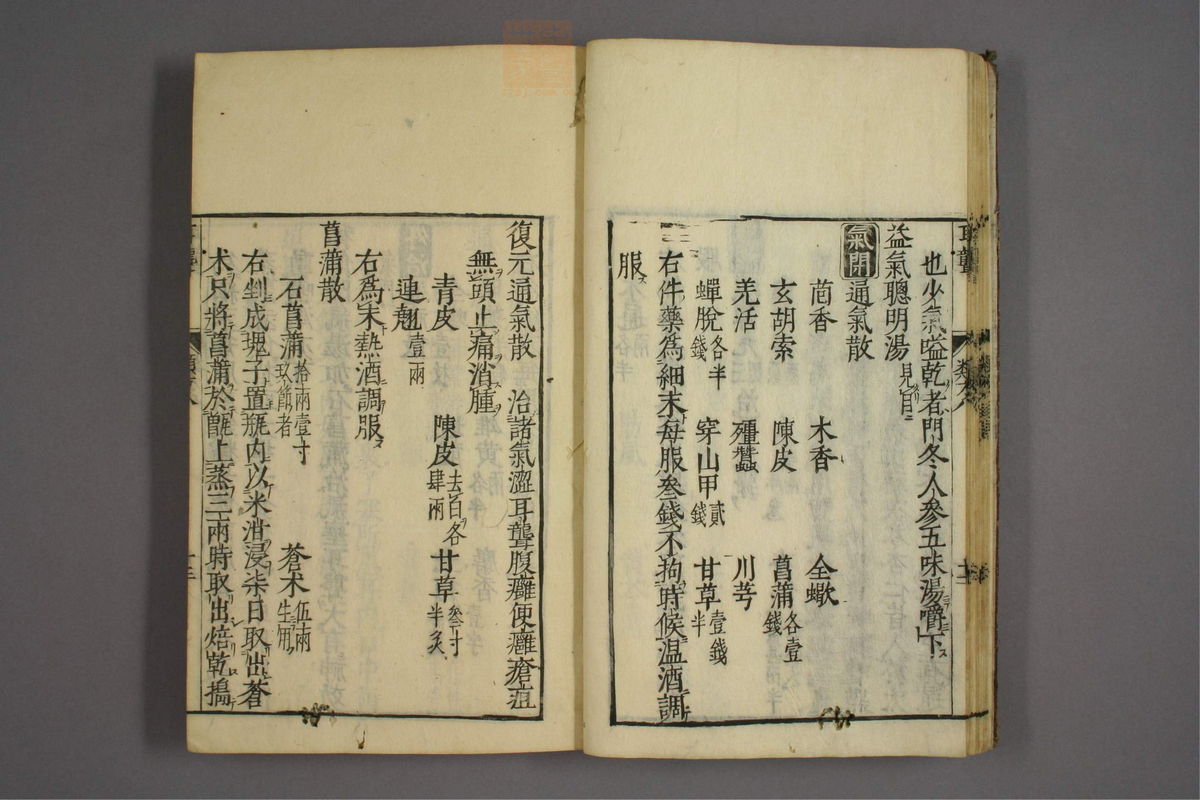 也少氣嗌乾者門冬人參五味湯嚼下
益氣聰明湯見目
氣閉
通氣散
茴香 木香 全蠍
玄胡索 陳皮 菖蒲各壹錢
羌活 殭蠶 川芎
蟬脫各半錢 穿山甲貳錢 甘草壹錢半
右件藥為細末每服叄錢不拘時候温酒調
服
復元通氣散 治諸氣澀耳聾腹癰便癰瘡疽
無頭止痛消腫
青皮 陳皮去白各肆兩 甘草叄寸半炙
連翹壹兩
右為末熱酒調服
菖蒲散
石菖蒲拾兩壹寸玖節者 蒼术伍兩生用
右剉成塊子置瓶内以米泔浸柒日取出蒼
术只將菖蒲於甑上蒸三兩時取出焙乾搗